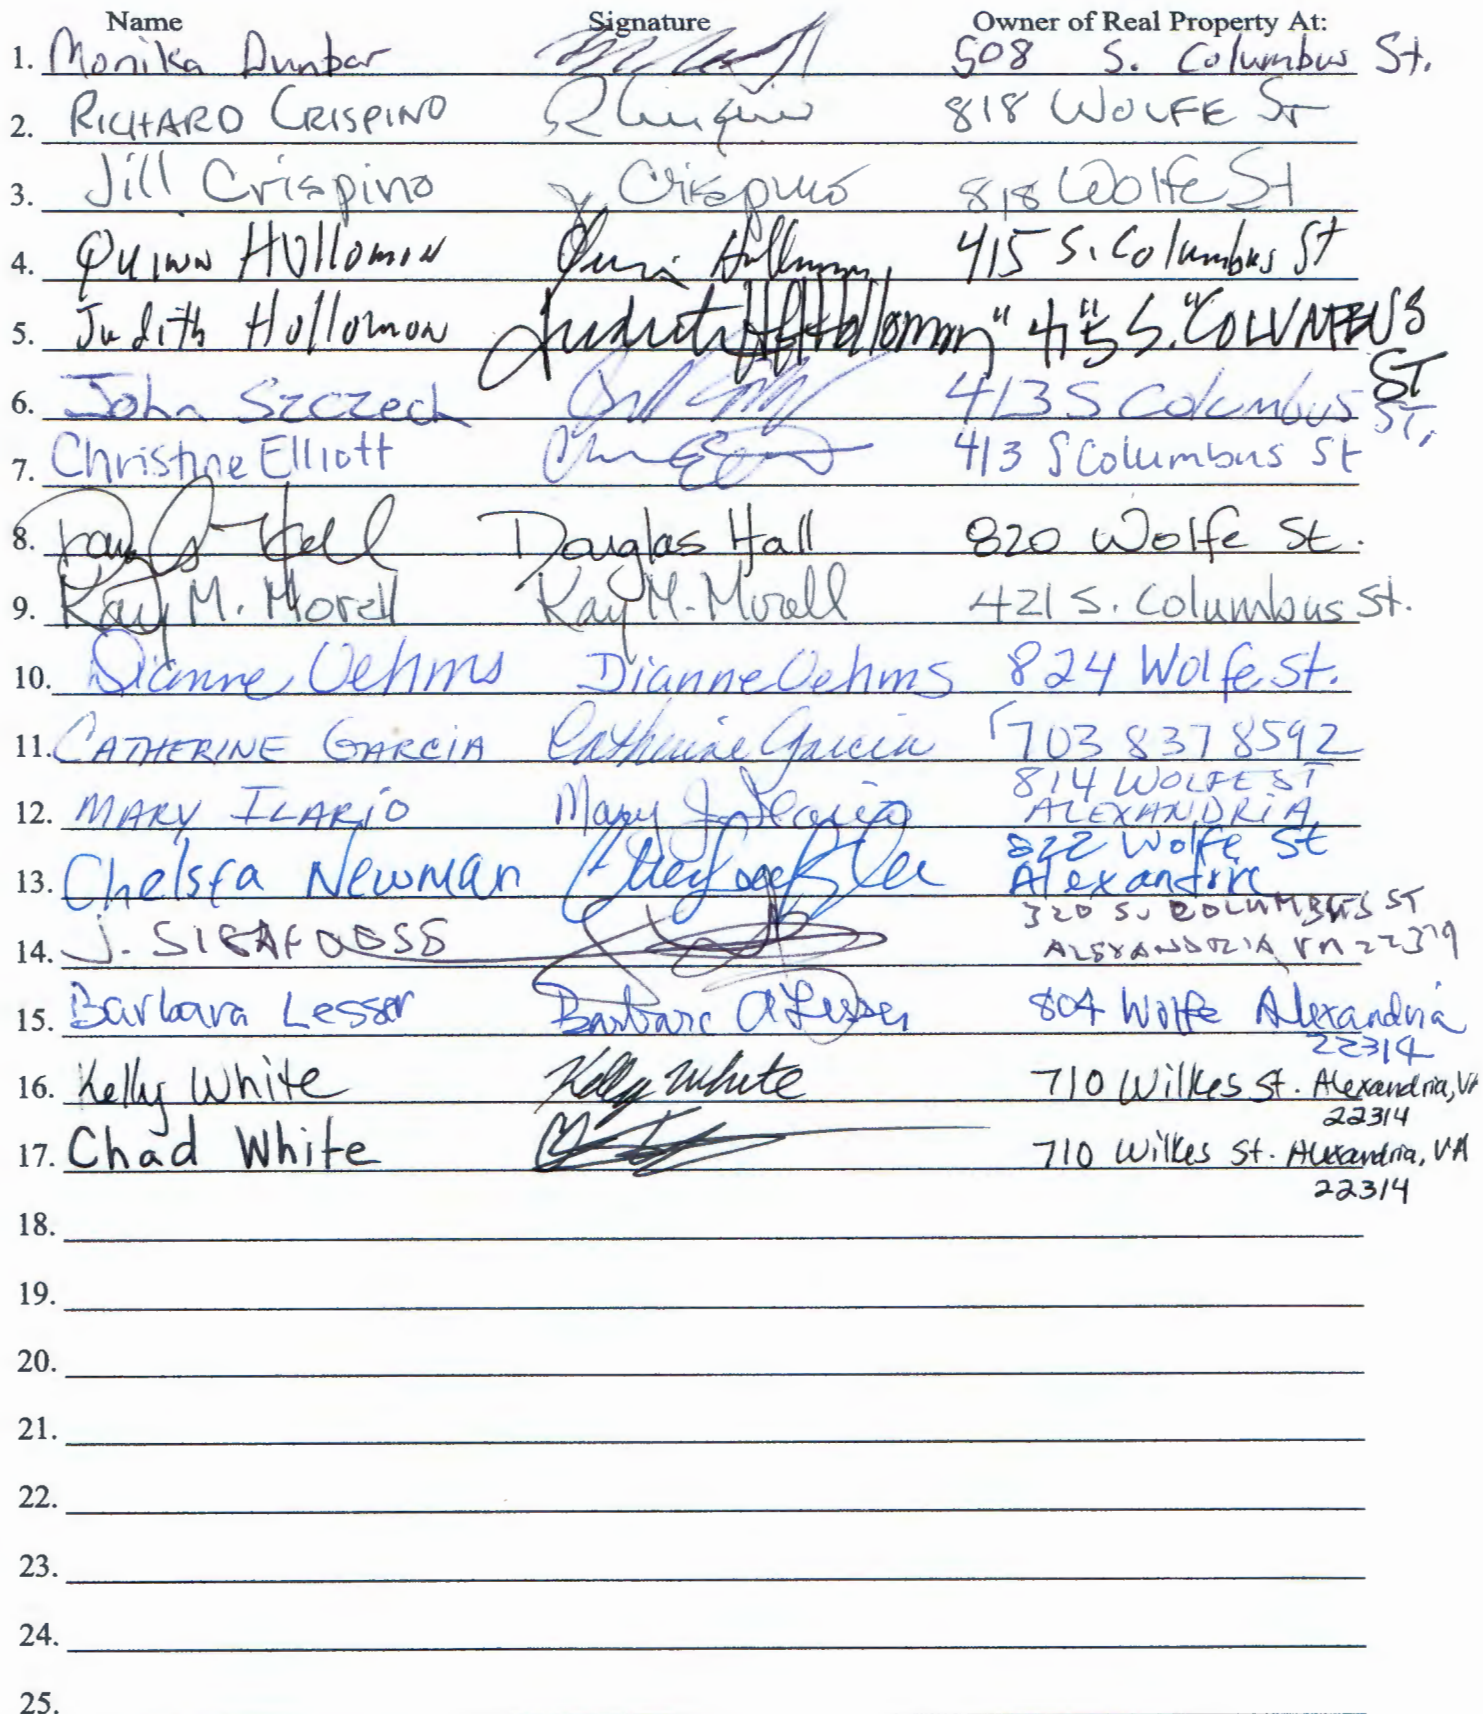 Name Signature Owner of Real Property At:
1. Monika Dunbar 508 S. Columbus St.
2. RICHARD CRISPINO R Crispino 818 WOLFE ST
3. Jill Crispino J Crispino 818 Wolfe St
4. Quinn Hollomon Quinn Hollomon 415 S. Columbus St
5. Judith Hollomon Judith Hollomon " 415 " S. "COLUMBUS
ST
6. John Szczech 413 S Columbus ST.
7. Christine Elliott 413 S Columbus St
8. Hall Douglas Hall 820 Wolfe St.
9. Kay M. Morell Kay M. Morell 421 S. Columbus St.
10. Dianne Oehms Dianne Oehms 824 Wolfe St.
11. CATHERINE GARCIA Catherine Garcia 703 837 8592
814 WOLFE ST
12. MARY ILARIO Mary J. Ilario ALEXANDRIA
822 Wolfe St
13. Chelsea Newman Alexandria
320 S. COLUMBUS ST
14. J. ALEXANDRIA VA
15. Barbara Lesser Barbara A Lesser 804 Wolfe Alexandria
22314
16. Kelly White Kelly White 710 Wilkes St. Alexandria, VA
22314
17. Chad White 710 Wilkes St. Alexandria, VA
22314
18.
19.
20.
21.
22.
23.
24.
25.